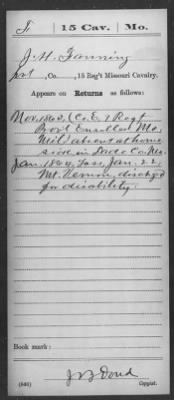 F | 15 Cav. | Mo.
J. H. Fanning
Pvt, Co. , 15 Reg't Missouri Cavalry.
Appears on Returns as follows:
Nov. 1863, (Co. E, 7 Regt
Provl Enrolled Mo.
Mil) absent at home
sick in Dade Co. Mo.
Jan. 1864, Loss, Jan. 22,
Mt. Vernon, dischgd
for disability.
Book mark:
(546)
Copyist.